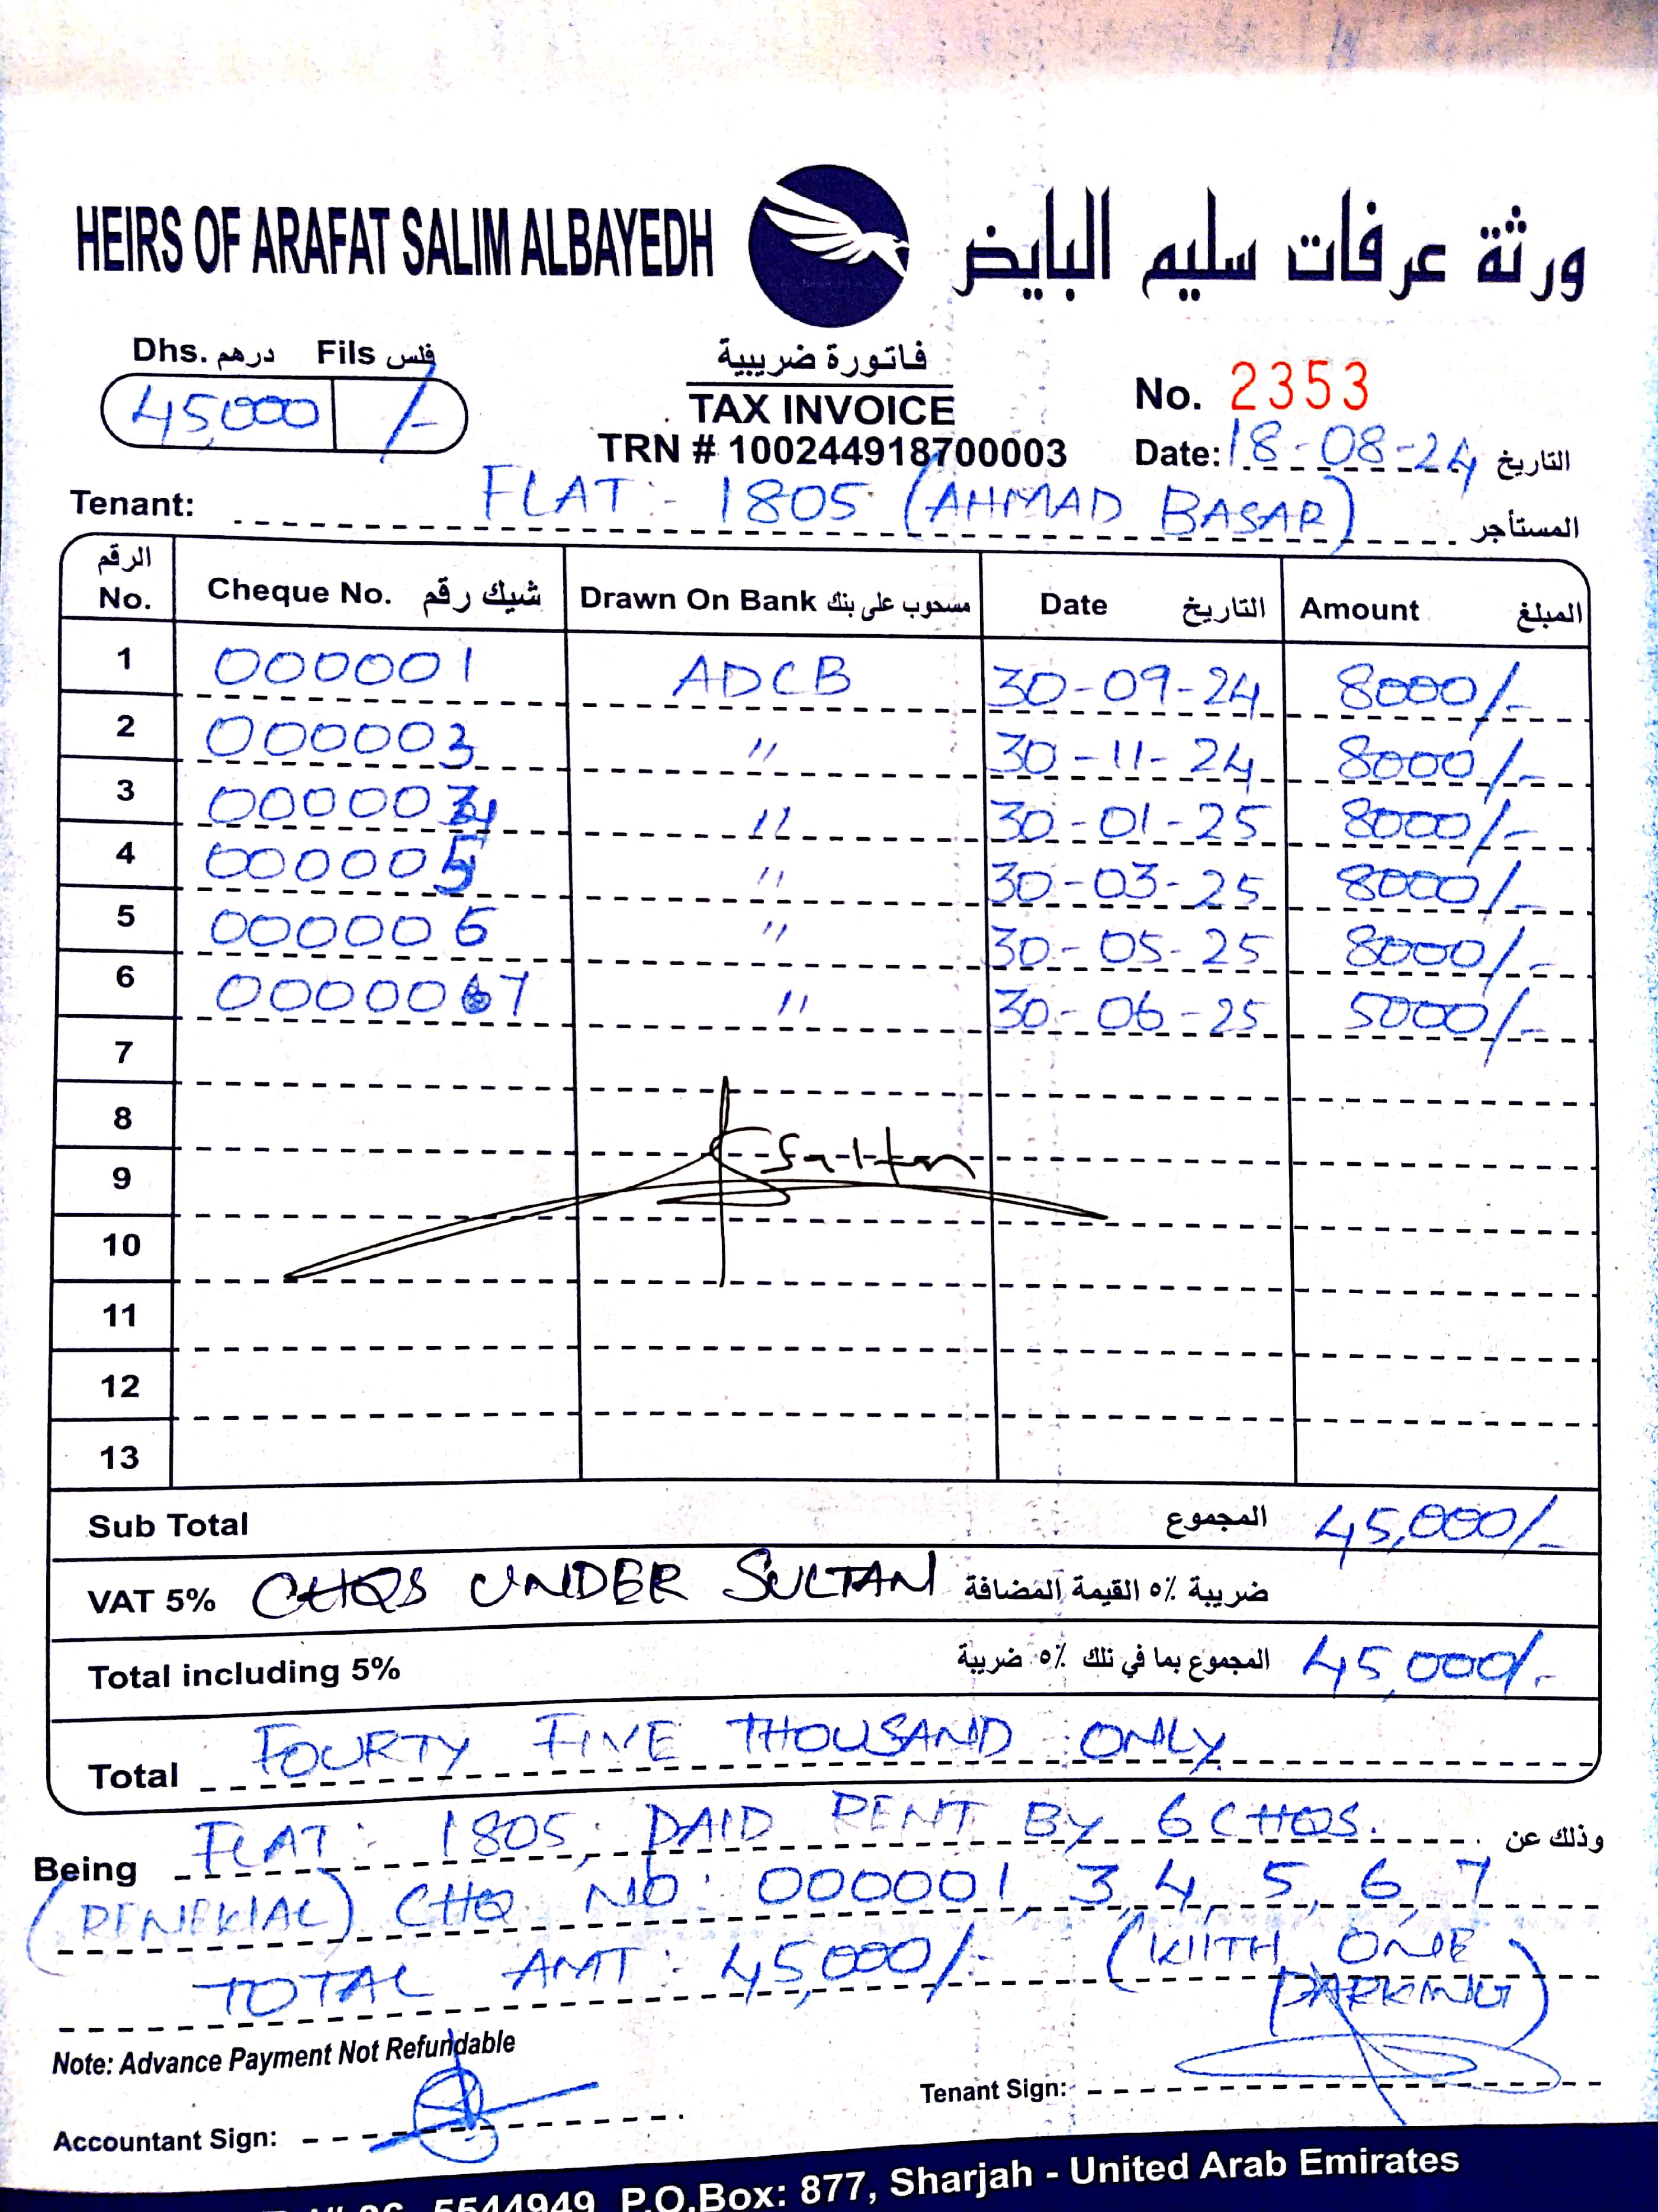 HEIRS OF ARAFAT SALIM ALBAYEDH ورثة عرفات سليم البايض
Dhs. درهم Fils فلس
45,000 /-
فاتورة ضريبية
TAX INVOICE
TRN # 100244918700003
No. 2353
Date: 18-08-24 التاريخ
Tenant: FLAT:- 1805 (AHMAD BASAR) المستأجر
الرقم No. Cheque No. شيك رقم Drawn On Bank مسحوب على بنك Date التاريخ Amount المبلغ
1 000001 ADCB 30-09-24 8000/-
2 000003 " 30-11-24 8000/-
3 000004 " 30-01-25 8000/-
4 000005 " 30-03-25 8000/-
5 000006 " 30-05-25 8000/-
6 000007 " 30-06-25 5000/-
7
8
Sultan
9
10
11
12
13
Sub Total المجموع 45,000/-
VAT 5% CHQS UNDER SULTAN ضريبة ٥٪ القيمة المضافة
Total including 5% المجموع بما في تلك ٥٪ ضريبة 45,000/-
Total FOURTY FIVE THOUSAND ONLY
Being FLAT: 1805, PAID RENT BY 6 CHQS. وذلك عن
(RENEWAL) CHQ NO: 000001, 3, 4, 5, 6, 7
TOTAL AMT: 45,000/- (WITH ONE
PARKING)
Note: Advance Payment Not Refundable
Tenant Sign:
Accountant Sign:
5544949 P.O.Box: 877, Sharjah - United Arab Emirates